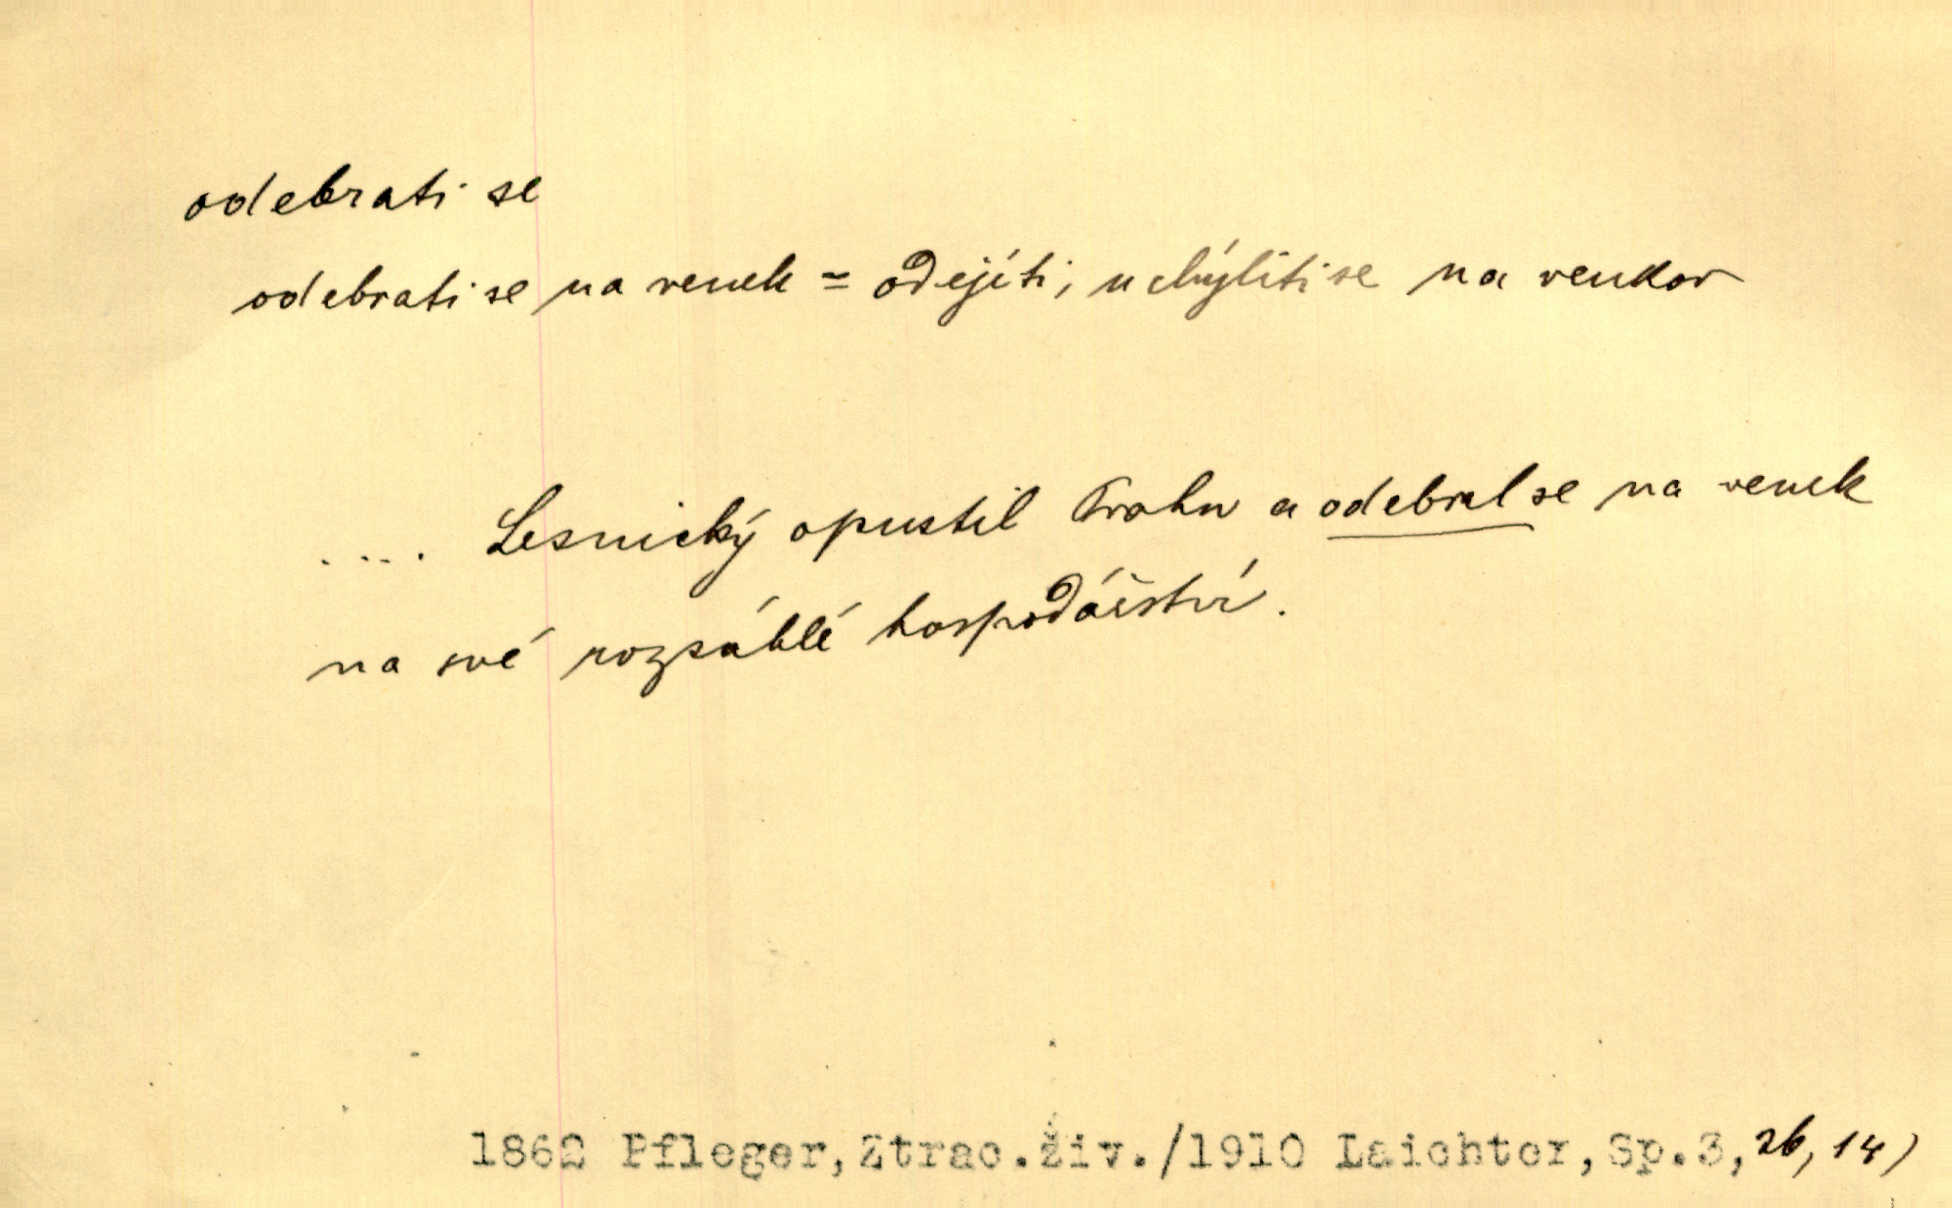 odebrati se
odebrati se na venek = odejíti, uchýliti se na venkov
.... Lesnický opustil Prahu a odebral se na venek
na své rozsáhlé hospodářství.
1862 Pfleger, Ztrac.živ./1910 Laichter, Sp.3, 26, 14)